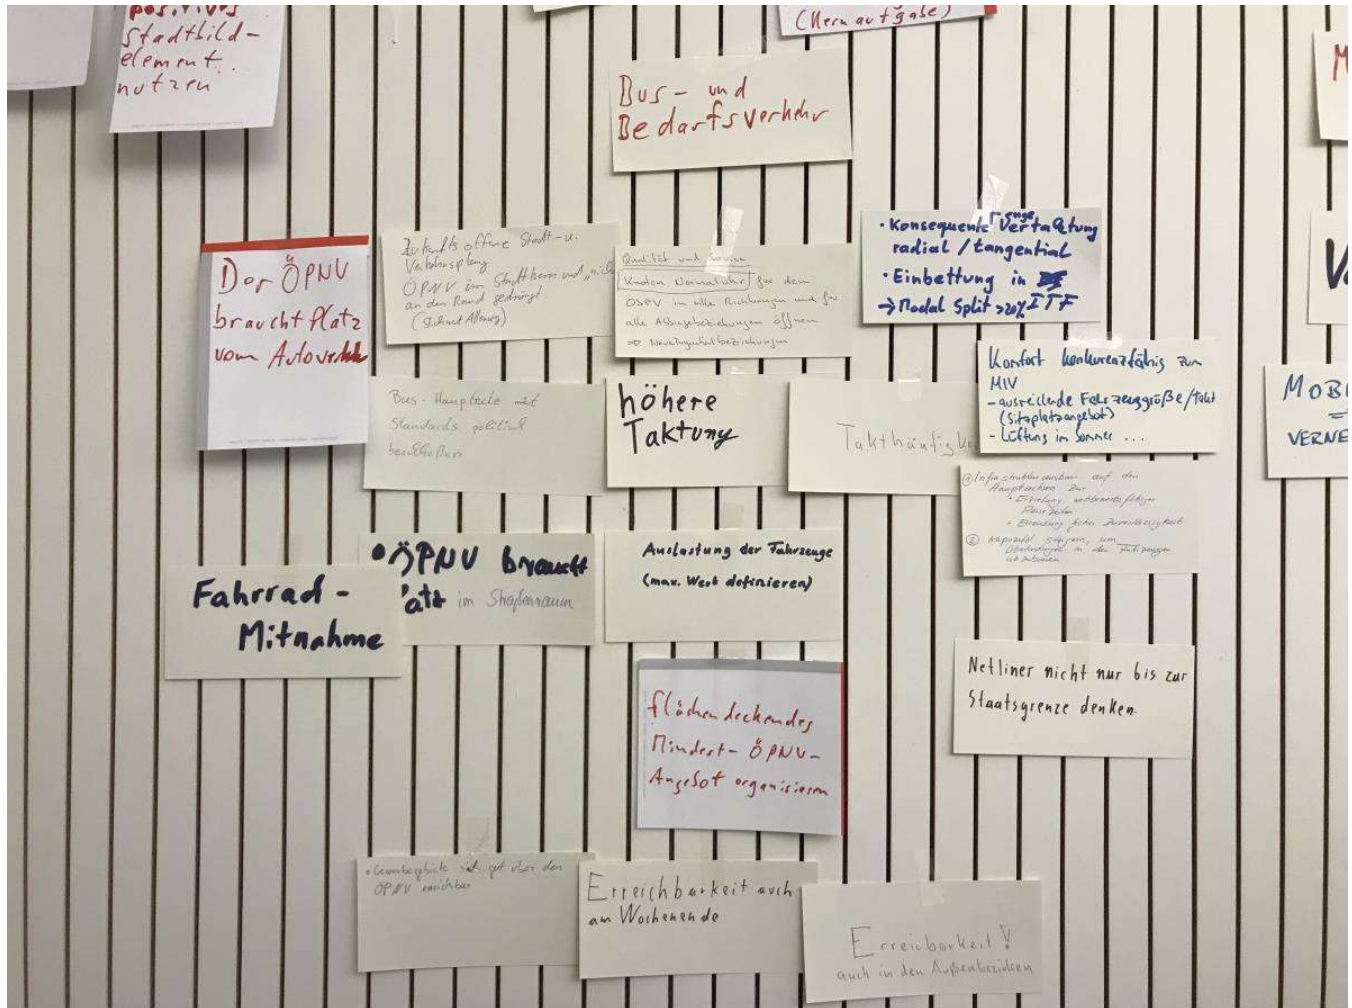 positives
Stadtbild-
element
nutzen
(Kernaufgabe)
Bus- und
Bedarfsverkehr
Der ÖPNV
braucht Platz
vom Autoverkehr
Zukunftsoffene Stadt- u.
Verkehrsplanung
ÖPNV im Stadtkern und "nicht
an den Rand gedrängt
Qualität und Service
Knoten Normaluhr für den
ÖSPV in alle Richtungen und für
alle Abbiegebeziehungen öffnen
• Konsequente Vertaktung
radial / tangential
• Einbettung in ITF
→ Modal Split >20%
Komfort konkurrenzfähig zum
MIV
- ausreichende Fahrzeuggröße/Takt
(Sitzplatzangebot)
- Lüftung im Sommer ...
Bus-Hauptnetz mit
Standards politisch
beschließen
höhere
Taktung
Takthäufigk
MOB
VERNE
① Infrastrukturausbau auf den
Hauptachsen zur
• Erzielung wettbewerbsfähiger
Reisezeiten
• Erreichung hoher Zuverlässigkeit
② Kapazität steigern, um
Überlastungen in den Fahrzeugen
Fahrrad-
Mitnahme
• ÖPNV braucht
atz im Straßenraum
Auslastung der Fahrzeuge
(max. Wert definieren)
Netliner nicht nur bis zur
Staatsgrenze denken.
flächendeckendes
Mindest-ÖPNV-
Angebot organisieren
• Gewerbegebiete sind gut über den
ÖPNV erreichbar
Erreichbarkeit auch
am Wochenende
Erreicbarkeit!
auch in den Außenbezirken